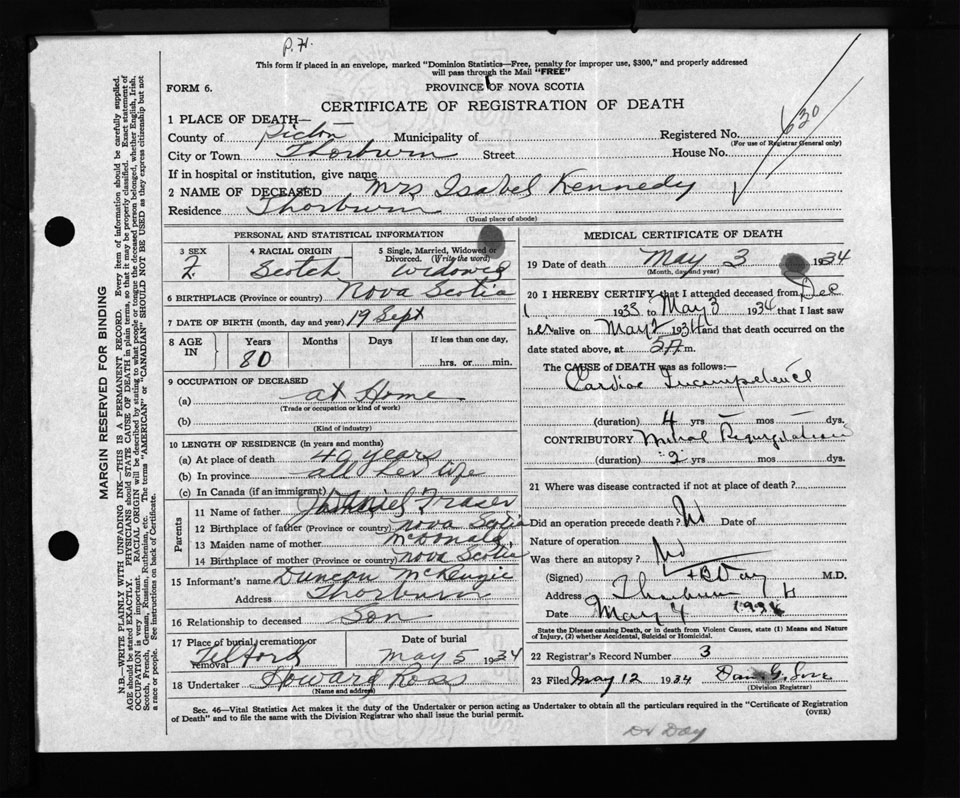 P.H.
This form if placed in an envelope, marked "Dominion Statistics—Free, penalty for improper use, $300," and properly addressed
will pass through the Mail "FREE"
FORM 6.
PROVINCE OF NOVA SCOTIA
CERTIFICATE OF REGISTRATION OF DEATH
630
1 PLACE OF DEATH—
County of Pictou Municipality of Registered No.
(For use of Registrar General only)
City or Town Thorburn Street House No.
If in hospital or institution, give name
2 NAME OF DECEASED Mrs Isabel Kennedy
Residence Thorburn
(Usual place of abode)
PERSONAL AND STATISTICAL INFORMATION
3 SEX F.
4 RACIAL ORIGIN Scotch
5 Single, Married, Widowed or Divorced. (Write the word) Widowed
6 BIRTHPLACE (Province or country) Nova Scotia
7 DATE OF BIRTH (month, day and year) 19 Sept
8 AGE IN Years 80 Months Days If less than one day, hrs. or min.
9 OCCUPATION OF DECEASED
(a) at Home
(Trade or occupation or kind of work)
(b)
(Kind of industry)
10 LENGTH OF RESIDENCE (in years and months)
(a) At place of death 40 years
(b) In province all her life
(c) In Canada (if an immigrant)
Parents
11 Name of father Fraser
12 Birthplace of father (Province or country) Nova Scotia
13 Maiden name of mother McDonald
14 Birthplace of mother (Province or country) Nova Scotia
15 Informant's name Duncan McKenzie
Address Thorburn
16 Relationship to deceased Son
17 Place of burial, cremation or removal Telford
Date of burial May 5 1934
18 Undertaker Howard Ross
(Name and address)
MEDICAL CERTIFICATE OF DEATH
19 Date of death May 3 1934
(Month, day and year)
20 I HEREBY CERTIFY that I attended deceased from Dec
1 1933 to May 3 1934 that I last saw
her alive on May 2 1934 and that death occurred on
date stated above, at 5 A m.
The CAUSE of DEATH was as follows:—
Cardiac Incompetence
(duration) 4 yrs — mos — dys.
CONTRIBUTORY Mitral Regurgitation
(duration) 2 yrs mos dys.
21 Where was disease contracted if not at place of death?
Did an operation precede death? No Date of
Nature of operation
Was there an autopsy? No
(Signed) Day M.D.
Address Thorburn
Date May 4 1934
State the Disease causing Death, or in Death from Violent Causes, state (1) Means and Nature
of Injury, (2) whether Accidental, Suicidal or Homicidal.
22 Registrar's Record Number 3
23 Filed May 12 1934 Dan G.
(Division Registrar)
Sec. 46—Vital Statistics Act makes it the duty of the Undertaker or person acting as Undertaker to obtain all the particulars required in the "Certificate of Registration
of Death" and to file the same with the Division Registrar who shall issue the burial permit.
(OVER)
Dr Day
MARGIN RESERVED FOR BINDING
N.B.—WRITE PLAINLY WITH UNFADING INK—THIS IS A PERMANENT RECORD. Every item of information should be carefully supplied.
AGE should be stated EXACTLY. PHYSICIANS should STATE CAUSE OF DEATH in plain terms, so that it may be properly classified. Exact statement of
OCCUPATION is very important. RACIAL ORIGIN will be described by stating to what people or tongue the deceased person belonged, whether English, Irish,
Scotch, French, German, Russian, Ruthenian, etc. The terms "AMERICAN" or "CANADIAN" SHOULD NOT BE USED as they express citizenship but not
a race or people. See instructions on back of Certificate.